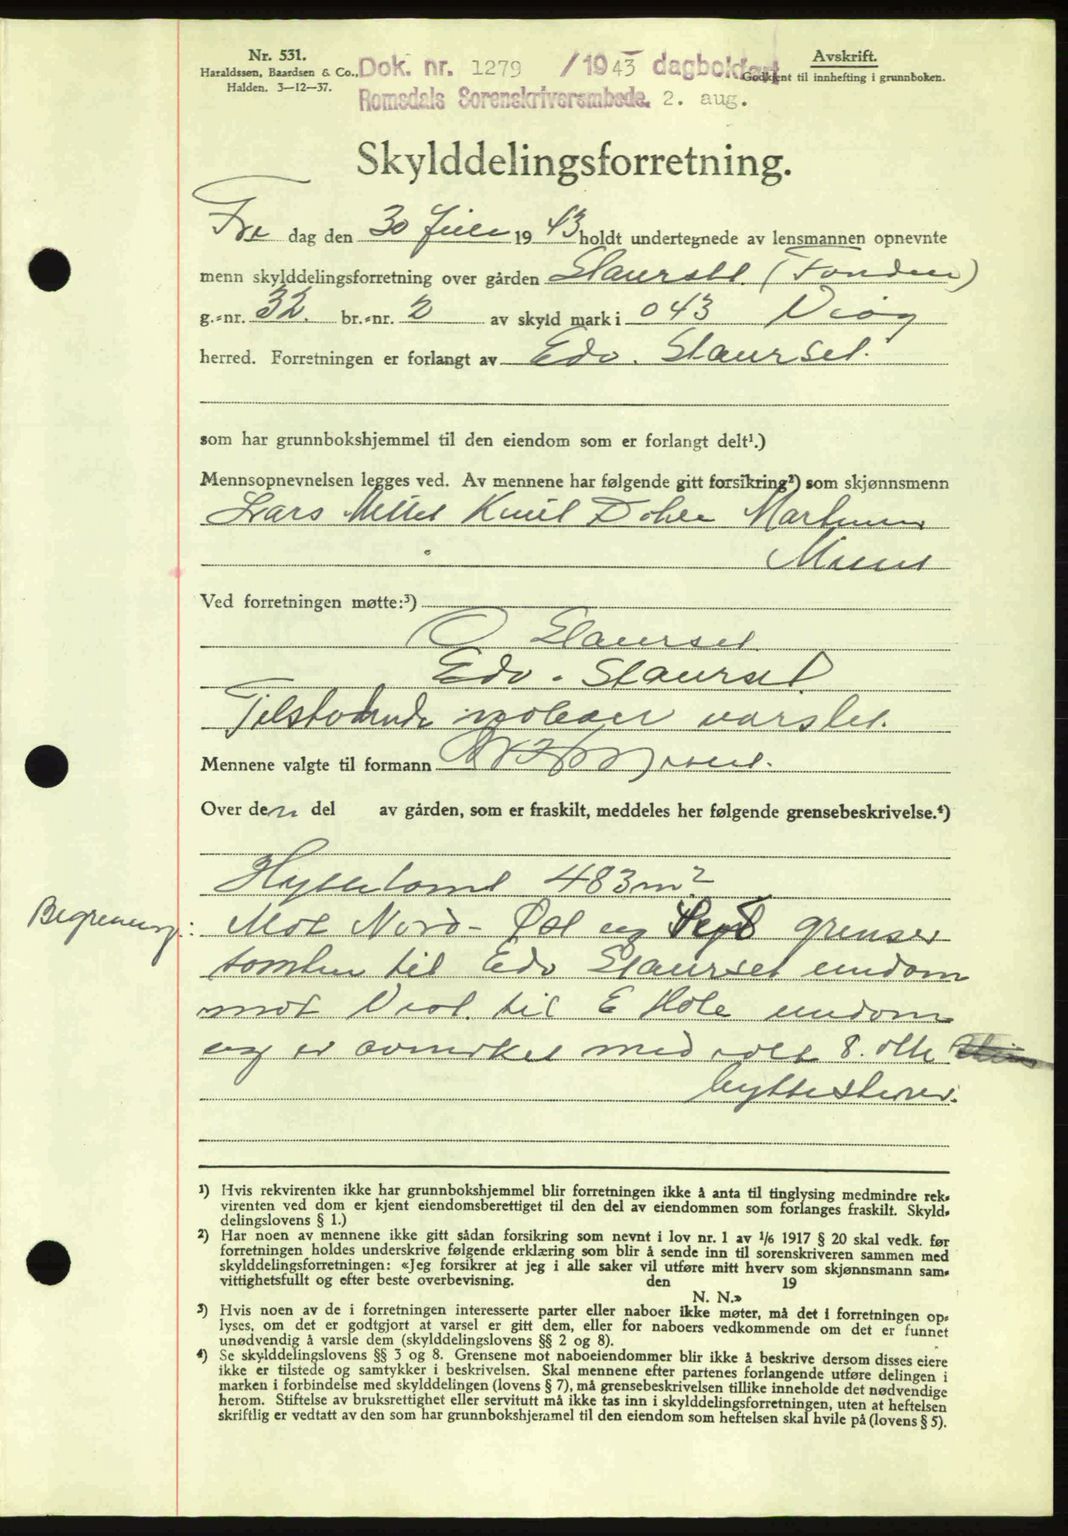 Nr. 531.
Haraldssen, Baardsen & Co.,
Halden. 3—12—37.
Dok. nr. 1279 /1943 dagbokført
Romsdals Sorenskriverembede. 2. aug.
Avskrift.
Godkjent til innhefting i grunnboken.
Skylddelingsforretning.
Fre dag den 30 juli 19 43 holdt undertegnede av lensmannen opnevnte
menn skylddelingsforretning over gården Staurset (
g.-nr. 32. br.-nr. 2 av skyld mark i 0 43
herred. Forretningen er forlangt av Edv. Staurset.
som har grunnbokshjemmel til den eiendom som er forlangt delt¹.)
Mennsopnevnelsen legges ved. Av mennene har følgende gitt forsikring²) som skjønnsmenn
Lars
Ved forretningen møtte:³)
O Staurset
Edv. Staurset
Tilstøtende naboer varslet.
Mennene valgte til formann
Over den del av gården, som er fraskilt, meddeles her følgende grensebeskrivelse.⁴)
Hyttetomt 483 m²
Begrensning: Mot Nord - Øst og Syd grenser
tomten til Edv Staurset eiendom
mot Vest. til E Hole eiendom
og er avmerket med i alt 8. otte
hyttestener.
¹) Hvis rekvirenten ikke har grunnbokshjemmel blir forretningen ikke å anta til tinglysing medmindre rek-
virenten ved dom er kjent eiendomsberettiget til den del av eiendommen som forlanges fraskilt. Skyld-
delingslovens § 1.)
²) Har noen av mennene ikke gitt sådan forsikring som nevnt i lov nr. 1 av ¹/₆ 1917 § 20 skal vedk. før
forretningen holdes underskrive følgende erklæring som blir å sende inn til sorenskriveren sammen med
skylddelingsforretningen: «Jeg forsikrer at jeg i alle saker vil utføre mitt hverv som skjønnsmann sam-
vittighetsfullt og efter beste overbevisning. den 19
N. N.»
³) Hvis noen av de i forretningen interesserte parter eller naboer ikke møter, må det i forretningen op-
lyses, om det er godtgjort at varsel er gitt dem, eller for naboers vedkommende om det er funnet
unødvendig å varsle dem (skylddelingslovens §§ 2 og 8).
⁴) Se skylddelingslovens §§ 3 og 8. Grensene mot naboeiendommer blir ikke å beskrive dersom disses eiere
ikke er tilstede og samtykker i beskrivelsen. Skal mennene efter partenes forlangende utføre delingen i
marken i forbindelse med skylddelingen (lovens § 7), må grensebeskrivelsen tillike inneholde det nødvendige
herom. Stiftelse av bruksrettighet eller servitutt må ikke tas inn i skylddelingsforretningen, uten at heftelsen
skriftlig er vedtatt av den som har grunnbokshjemmel til den eiendom som heftelsen skal hvile på (lovens § 5).